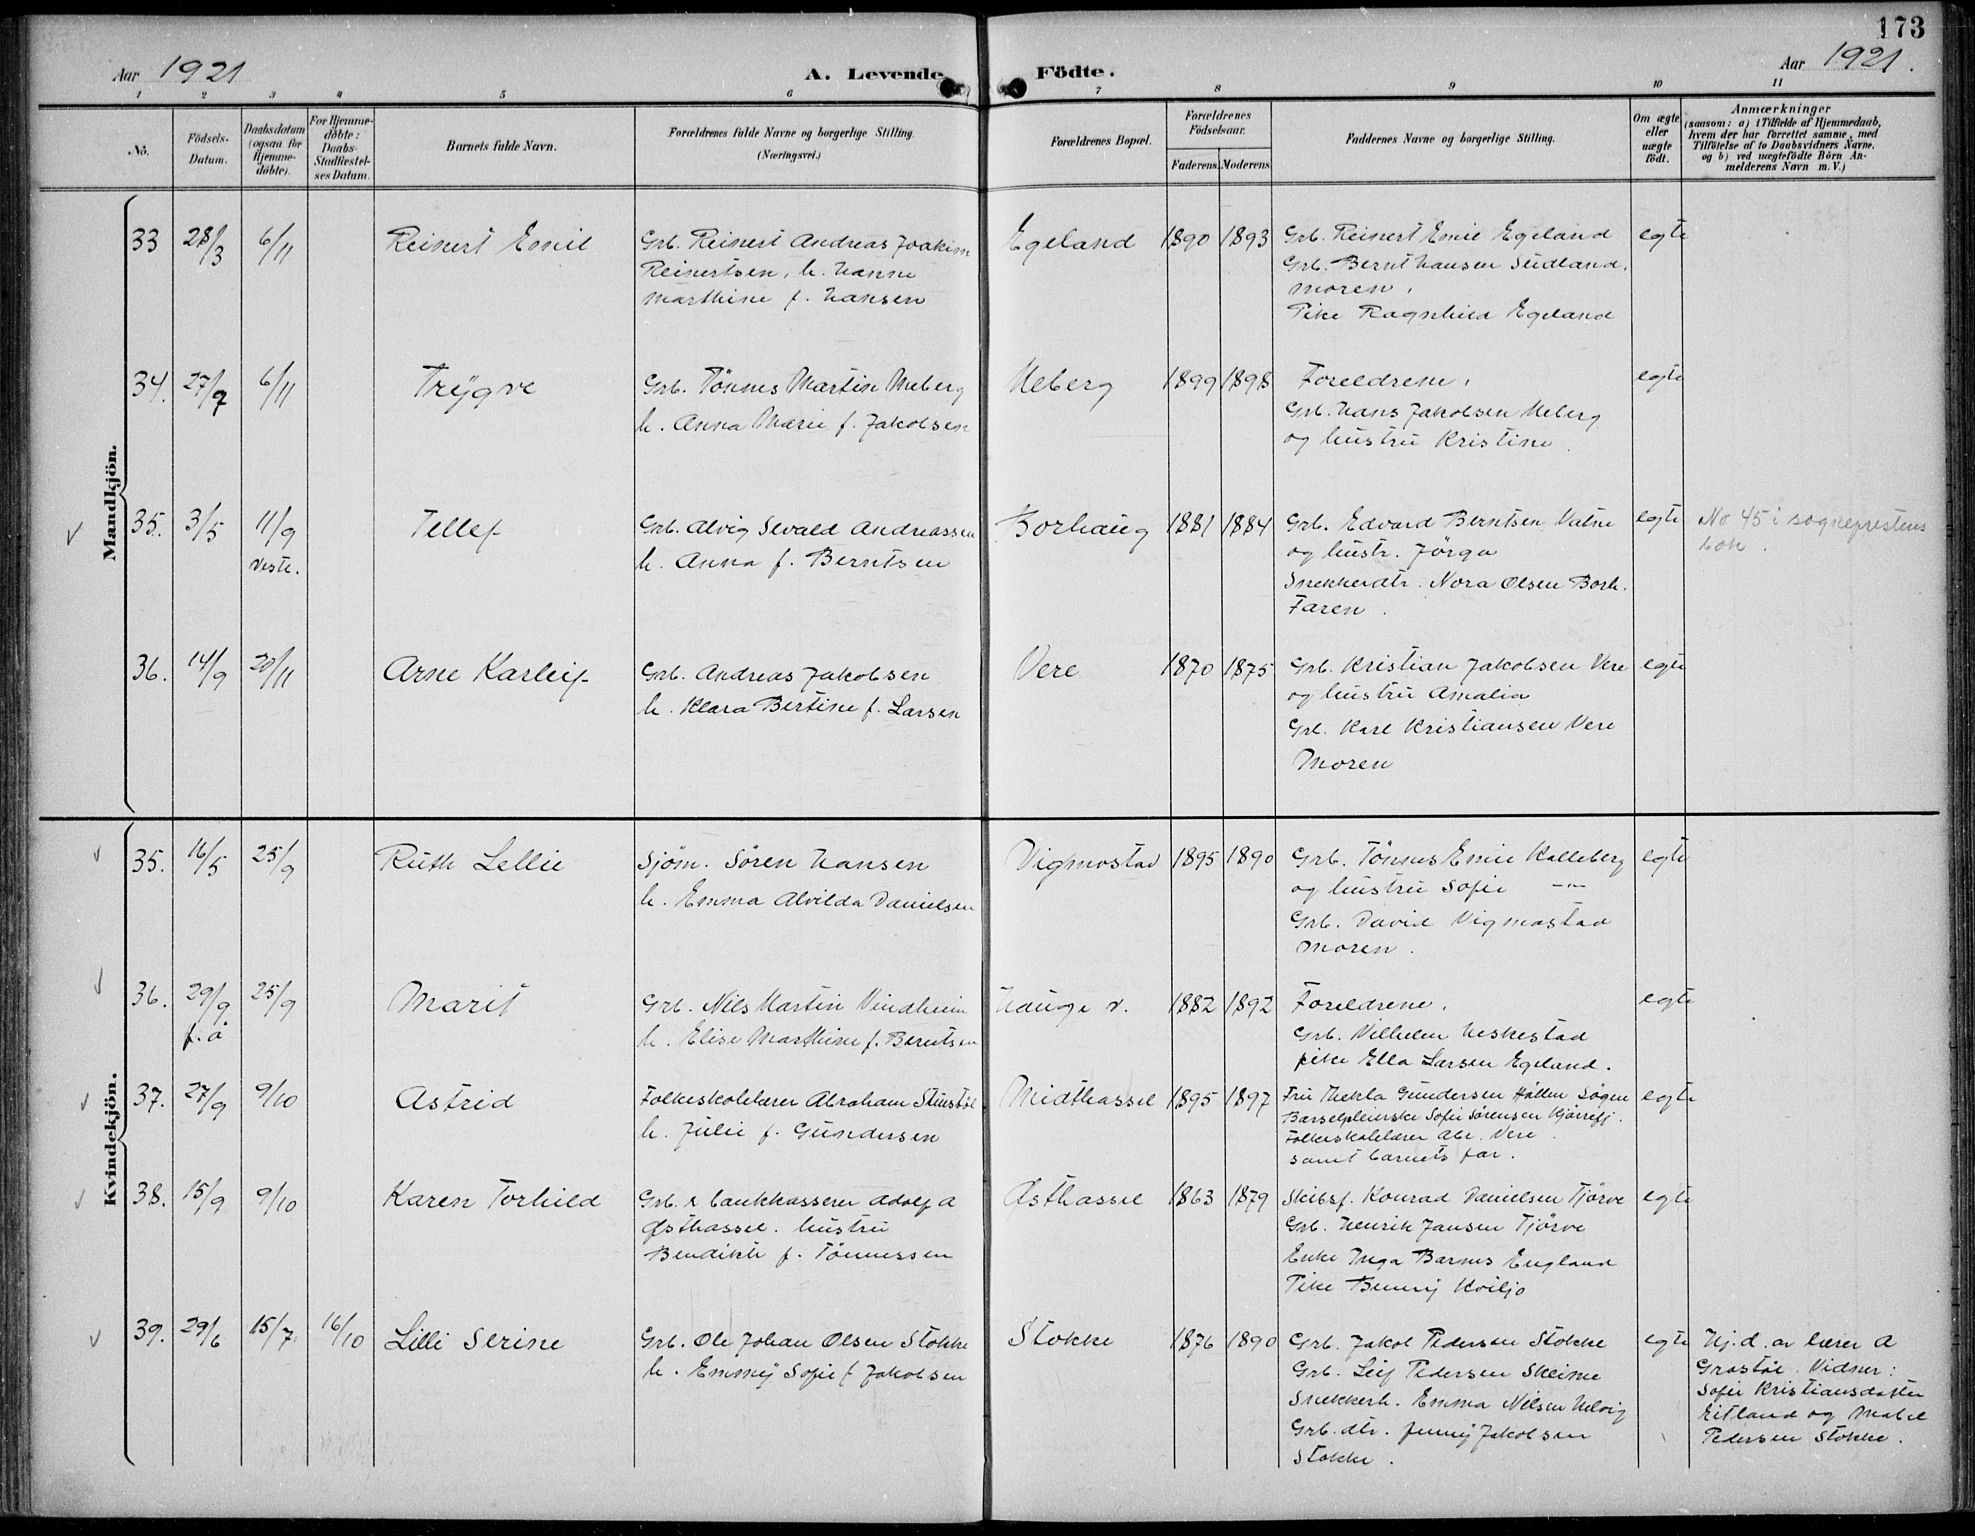 173
Aar 1921
A. Levende
Födte.
Aar 1921.
1 2 3 4 5 6 7 8 9 10 11
No.
Födsels-
Datum.
Daabsdatum
(ogsaa for
Hjemme-
døbte).
For Hjemme-
døbte:
Daabs-
Stadfæstel-
ses Datum.
Barnets fulde Navn.
Forældrenes fulde Navne og borgerlige Stilling.
(Næringsvei.)
Forældrenes Bopæl.
Forældrenes
Födselsaar.
Faderens. Moderens.
Faddernes Navne og borgerlige Stilling.
Om ægte
eller
uægte
födt.
Anmærkninger
(saasom: a) i Tilfælde af Hjemmedaab,
hvem der har forrettet samme, med
Tilföielse af to Daabsvidners Navne,
og b) ved uægtefödte Börn An-
melderens Navn m. V.)
Mandkjön.
33 28/3 6/11 Reinert Emil
Grb. Reinert Andreas Joakim
Reinertsen, h. Hanne
Marthine f. Hansen
Egeland 1890 1893
Grb. Reinert Emil Egeland
Grb. Bernt Hansen Sudland.
moren.
Pike Ragnhild Egeland
egte
34. 27/7 6/11 Trygve
Grb. Tönnes Martin Meberg
h. Anna Marie f. Jakobsen
Meberg 1899 1898
Foreldrene.
Grb. Hans Jakobsen Meberg
og hustru Kristine.
egte
35. 3/5 11/9 Tellef
Veste.
Grb. Alvig Sevald Andreassen
h. Anna f. Berntsen
Borhaug 1881 1884
Grb. Edvard Berntsen Vatne
og hustr. Jörga
Snekkerdtr. Nora Olsen Borh.
Faren.
egte
No 45 i sogneprestens
bok.
36. 14/9 20/11 Arne Karleif
Grb. Andreas Jakobsen
h. Klara Bertine f. Larsen
Vere 1870 1875
Grb. Kristian Jakobsen Vere
og hustru Amalia
Grb. Karl Kristiansen Vere
Moren
egte
Kvindekjön.
35. 16/5 25/9 Ruth Lellie
Sjöm. Sören Hansen
h. Emma Alvilda Danielsen
Vigmostad 1895 1890
Grb. Tönnes Emil Kalleberg
og hustru Sofie —"—
Grb. David Vigmostad
Moren.
egte
36. 29/9 25/9 Marit
f.å
Grb. Nils Martin Vindheim
h. Elise Marthine f. Berntsen
Hauge v. 1882 1892
Foreldrene.
Grb. Vilhelm Heskestad
pike Ella Larsen Egeland.
egte
37. 27/9 9/10 Astrid
Folkeskolelærer Abraham Stuestøl
h. Julie f. Gundersen
Midthassel 1895 1897
Fru Thekla Gundersen Höllen Sögne
Barselpleierske Sofie Sörensen
Folkeskolelærer Abr. Vere.
samt barnets far.
egte
38. 15/9 9/10 Karen Torhild
Grb. & bankkasserer Adolf A
Østhassel. hustru
Bendikte f. Tönnessen
Østhassel 1863 1879
Skibsf. Konrad Danielsen Tjörve
Grb. Henrik Jansen Tjörve
Enke Inga Barnes England
Pike Bunny Kviljo
egte
39. 29/6 15/7 16/10 Lilli Serine
Grb. Ole Johan Olsen Stokke
h. Emmy Sofie f Jakobsen
Stokke 1876 1890
Grb. Jakob Pedersen Stokke
Grb. Leif Pedersen Skeime
Snekkerh. Emma Nilsen Helvig
Grb. dtr. Jenny Jakobsen
Stokke.
egte
Hj.d. av lærer A
Grostöl. Vidner:
Sofie Kristiansdatter
Eitland og Mabel
Pedersen Stokke.